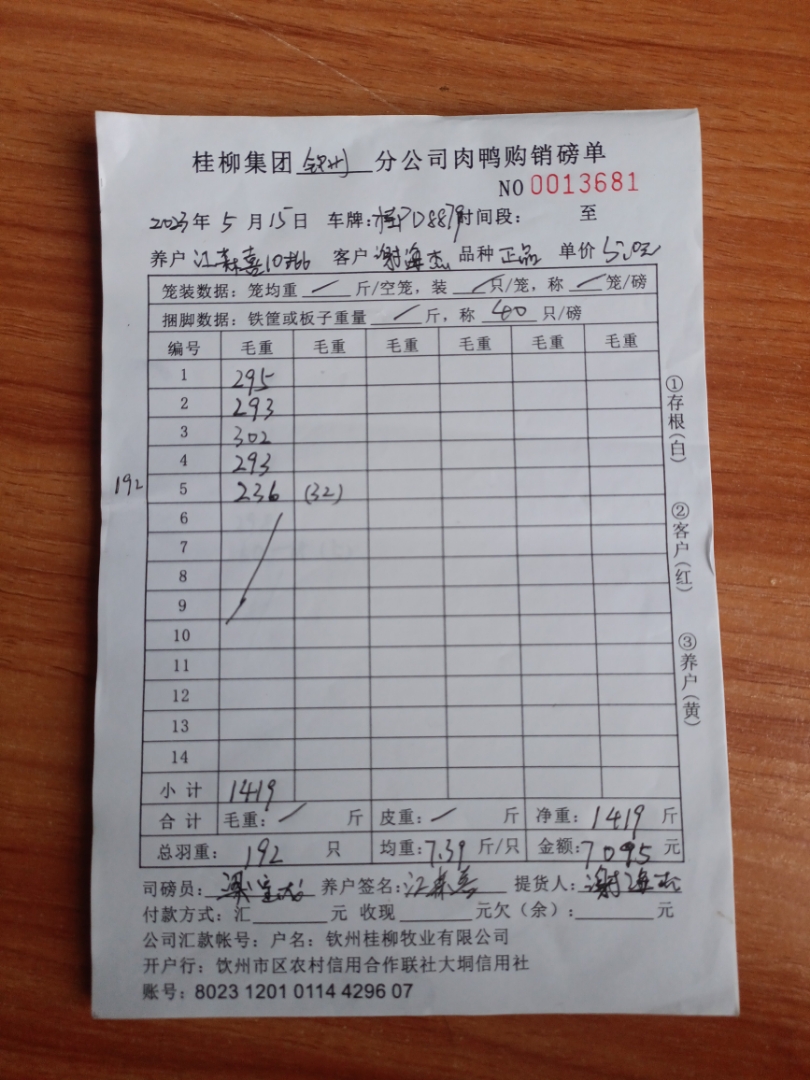 桂柳集团钦州分公司肉鸭购销磅单
NO 0013681
2023年5月15日 车牌:桂PD8879时间段: 至
养户江森喜 客户谢海杰 品种正品 单价5.0元
笼装数据:笼均重/斤/空笼,装/只/笼,称/笼/磅
捆脚数据:铁筐或板子重量/斤,称40只/磅
编号 毛重 毛重 毛重 毛重 毛重 毛重
1 295
2 293
3 302
4 293
192 5 236 (32)
6
7
8
9
10
11
12
13
14
小计 1419
合计 毛重:/斤 皮重:/斤 净重:1419斤
总羽重:192只 均重:7.39斤/只 金额:7095元
司磅员: 养户签名:江森喜 提货人:谢海杰
付款方式:汇 元 收现 元欠(余): 元
公司汇款帐号:户名:钦州桂柳牧业有限公司
开户行:钦州市区农村信用合作联社大垌信用社
账号:8023 1201 0114 4296 07
①存根(白)
②客户(红)
③养户(黄)